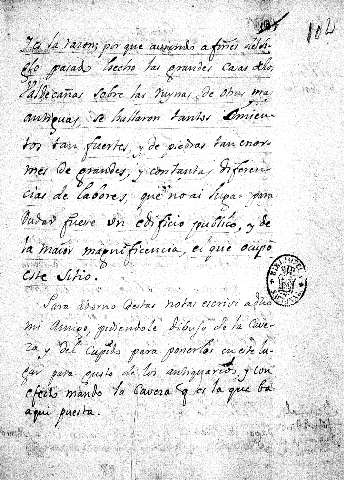 102
Es la razon, por que auiendo a fines del si
glo pasado hecho las grandes casas de los
Valdecañas sobre las ruynas de otras mas
antiguas, se hallaron tantos cimien
tos tan fuertes, y de piedras tan enor
mes de grandes, y con tantas diferen
cias de labores, que no ai lugar para
dudar fuese un edificio publico, y de
la maior magnificencia, el que ocupó
este sitio.
Para adorno destas notas escrivi a
mi Amigo, pidiendole dibujo de la Cave
za, y del Cupido para ponerlos en este lu
gar para gusto de los antiquarios, y con
efecto mando la Caveza q es la que va
aqui puesta.